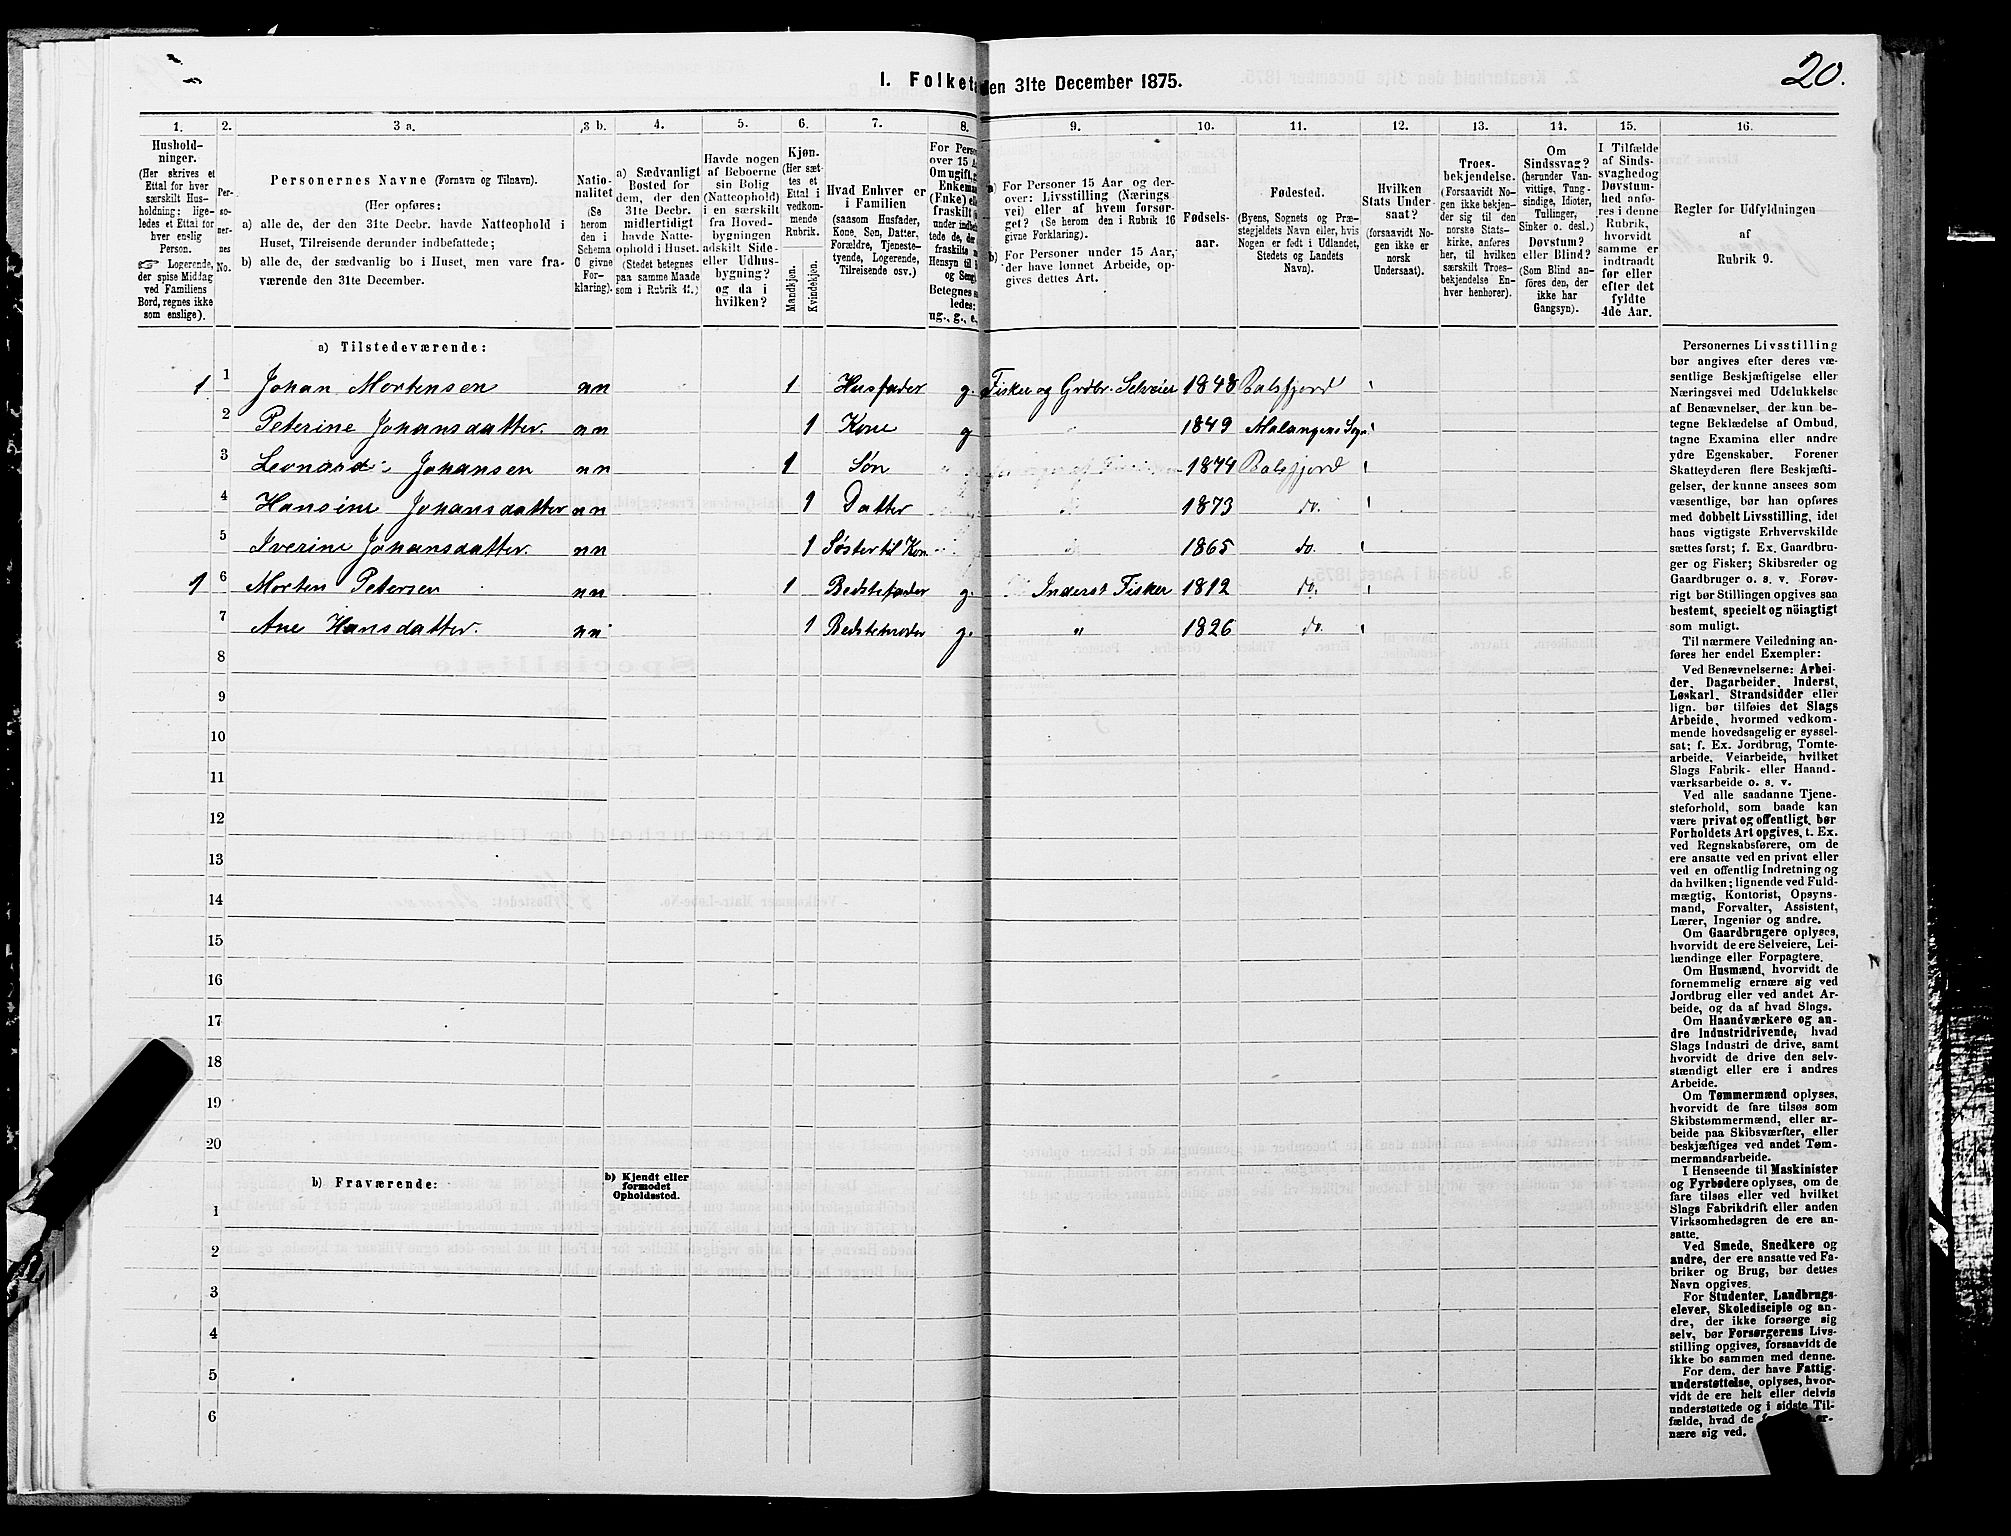 20.
I. Folketa
den 31te December 1875.
1. 2. 3 a. 3 b. 4. 5. 6. 7. 8. 9. 10. 11. 12. 13. 14. 15. 16.
Hushold-
ninger.
(Her skrives et
Ettal for hver
særskilt Hus-
holdning; lige-
ledes et Ettal for
hver enslig
Person.
☞ Logerende,
der spise Middag
ved Familiens
Bord, regnes ikke
som enslige).
Per-
so-
ner-
nes
No.
Personernes Navne (Fornavn og Tilnavn).
(Her opføres:
a) alle de, der den 31te Decbr. havde Natteophold i
Huset, Tilreisende derunder indbefattede;
b) alle de, der sædvanlig bo i Huset, men vare fra-
værende den 31te December.
Natio-
nalitet
(Se
herom
den i
Schema
C givne
For-
klaring).
a) Sædvanligt
Bosted for
dem, der den
31te Decbr.
midlertidigt
havde Natte-
ophold i Huset.
(Stedet betegnes
paa samme Maade
som i Rubrik 11.)
Havde nogen
af Beboerne
sin Bolig
(Natteophold)
i en særskilt
fra Hoved-
bygningen
adskilt Side-
eller Udhus-
bygning?
og da i
hvilken?
Kjøn.
(Her sæt-
tes et
Ettal i
vedkom-
mende
Rubrik.
Mandkjøn.
Kvindekjøn.
Hvad Enhver er
i Familien
(saasom Husfader,
Kone, Søn, Datter,
Forældre, Tjeneste-
tyende, Logerende,
Tilreisende osv.)
For Perso
over 15 A
Om ugift, g
Enkeman
(Enke) elle
fraskilt
under indbe
tede de, der
fraskilte
Hensyn til
og Seng.
Betegnes s
ledes:
ug., g., e.,
a) For Personer 15 Aar og der-
over: Livsstilling (Nærings
vei) eller af hvem forsør-
get? (Se herom den i Rubrik 16
givne Forklaring).
b) For Personer under 15 Aar,
der have lønnet Arbeide, op-
gives dettes Art.
Fødsels-
aar.
Fødested.
(Byens, Sognets og Præ-
stegjeldets Navn eller, hvis
Nogen er født i Udlandet,
Stedets og Landets
Navn).
Hvilken
Stats Under-
saat?
(forsaavidt No-
gen ikke er
norsk
Undersaat).
Troes-
bekjendelse.
(Forsaavidt No-
gen ikke bekjen-
der sig til den
norske Stats-
kirke, anføres
her, til hvilken
særskilt Troes-
bekjendelse En-
hver henhører).
Om
Sindssvag?
(herunder Van-
vittige, Tung-
sindige, Idioter,
Tullinger,
Sinker o. desl.)
Døvstum?
eller Blind?
(Som Blind an-
føres den, der
ikke har
Gangsyn).
I Tilfælde
af Sinds-
svaghed og
Døvstum-
hed anfø-
res i denne
Rubrik,
hvorvidt
samme er
indtraadt
før eller
efter det
fyldte
4de Aar.
Regler for Udfyldningen
af
Rubrik 9.
a) Tilstedeværende:
1 1 Johan Mortensen nn 1 Husfader g. Fisker og Grdbr. Selveier 1848 Balsfjord
2 Peterine Johansdatter. nn 1 Kone g 1849 Malangens Sogn
3 Leonard Johansen nn 1 Søn 1874 Balsfjord
4 Hansine Johansdatter nn 1 Datter 1873 do.
5 Iverine Johansdatter. nn 1 Søster til Kon 1865 do.
1 6 Morten Petersen nn 1 Bedstefader g. Inderst Fisker 1812 do.
7 Ane Hansdatter. nn 1 Bedstemoder g. " 1826 do.
8
9
10
11
12
13
14
15
16
17
18
19
20
b) Fraværende:
b) Kjendt eller
formodet
Opholdssted.
1
2
3
4
5
6
Personernes Livsstilling
bør angives efter deres væ-
sentlige Beskjæftigelse eller
Næringsvei med Udelukkelse
af Benævnelser, der kun be-
tegne Beklædelse af Ombud,
tagne Examina eller andre
ydre Egenskaber. Forener
Skatteyderen flere Beskjæfti-
gelser, der kunne ansees som
væsentlige, bør han opføres
med dobbelt Livsstilling, idet
hans vigtigste Erhvervskilde
sættes først; f. Ex. Gaardbru-
ger og Fisker; Skibsreder og
Gaardbruger o. s. v. Forøv-
rigt bør Stillingen opgives saa
bestemt, specielt og nöiagtigt
som muligt.
Til nærmere Veiledning an-
føres her endel Exempler:
Ved Benævnelserne: Arbei-
der, Dagarbeider, Inderst,
Løskarl, Strandsidder eller
lign. bør tilføies det Slags
Arbeide, hvormed vedkom-
mende hovedsagelig er syssel-
sat; f. Ex. Jordbrug, Tomte-
arbeide, Veiarbeide, hvilket
Slags Fabrik- eller Haand-
værksarbeide o. s. v.
Ved alle saadanne Tjene-
steforhold, som baade kan
være privat og offentligt, bør
Forholdets Art opgives, t. Ex.
ved Regnskabsførere, om de
ere ansatte ved en privat eller
ved en offentlig Indretning og
da hvilken; lignende ved Fuld-
mægtig, Kontorist, Opsyns-
mand, Forvalter, Assistent,
Lærer, Ingeniør og andre.
Om Gaardbrugere oplyses,
hvorvidt de ere Selveiere, Lei-
lændinge eller Forpagtere.
Om Husmænd, hvorvidt de
fornemmelig ernære sig ved
Jordbrug eller ved andet Ar-
beide, og da af hvad Slags.
Om Haandværkere og an-
dre Industridrivende, hvad
Slags Industri de drive, samt
hvorvidt de drive den selv-
stændigt eller ere i andres
Arbeide.
Om Tømmermænd oplyses,
hvorvidt de fare tilsøs som
Skibstømmermænd, eller ar-
beide paa Skibsværfter, eller
beskjæftiges ved andet Tøm-
mermandsarbeide.
I Henseende til Maskinister
og Fyrbødere oplyses, om de
fare tilsøs eller ved hvilket
Slags Fabrikdrift eller anden
Virksomhedsgren de ere an-
satte.
Ved Smede, Snedkere og
andre, der ere ansatte ved Fa-
briker og Brug, bør dettes
Navn opgives.
For Studenter, Landbrugs-
elever, Skoledisciple og an-
dre, der ikke forsørge sig
selv, bør Forsørgerens Livs-
stilling opgives, forsaavidt de
ikke bo sammen med denne.
For dem, der have Fattig-
understøttelse, oplyses, hvor-
vidt de ere helt eller delvis
understøttede og i sidste Til-
fælde, hvad de
nære sig ved.